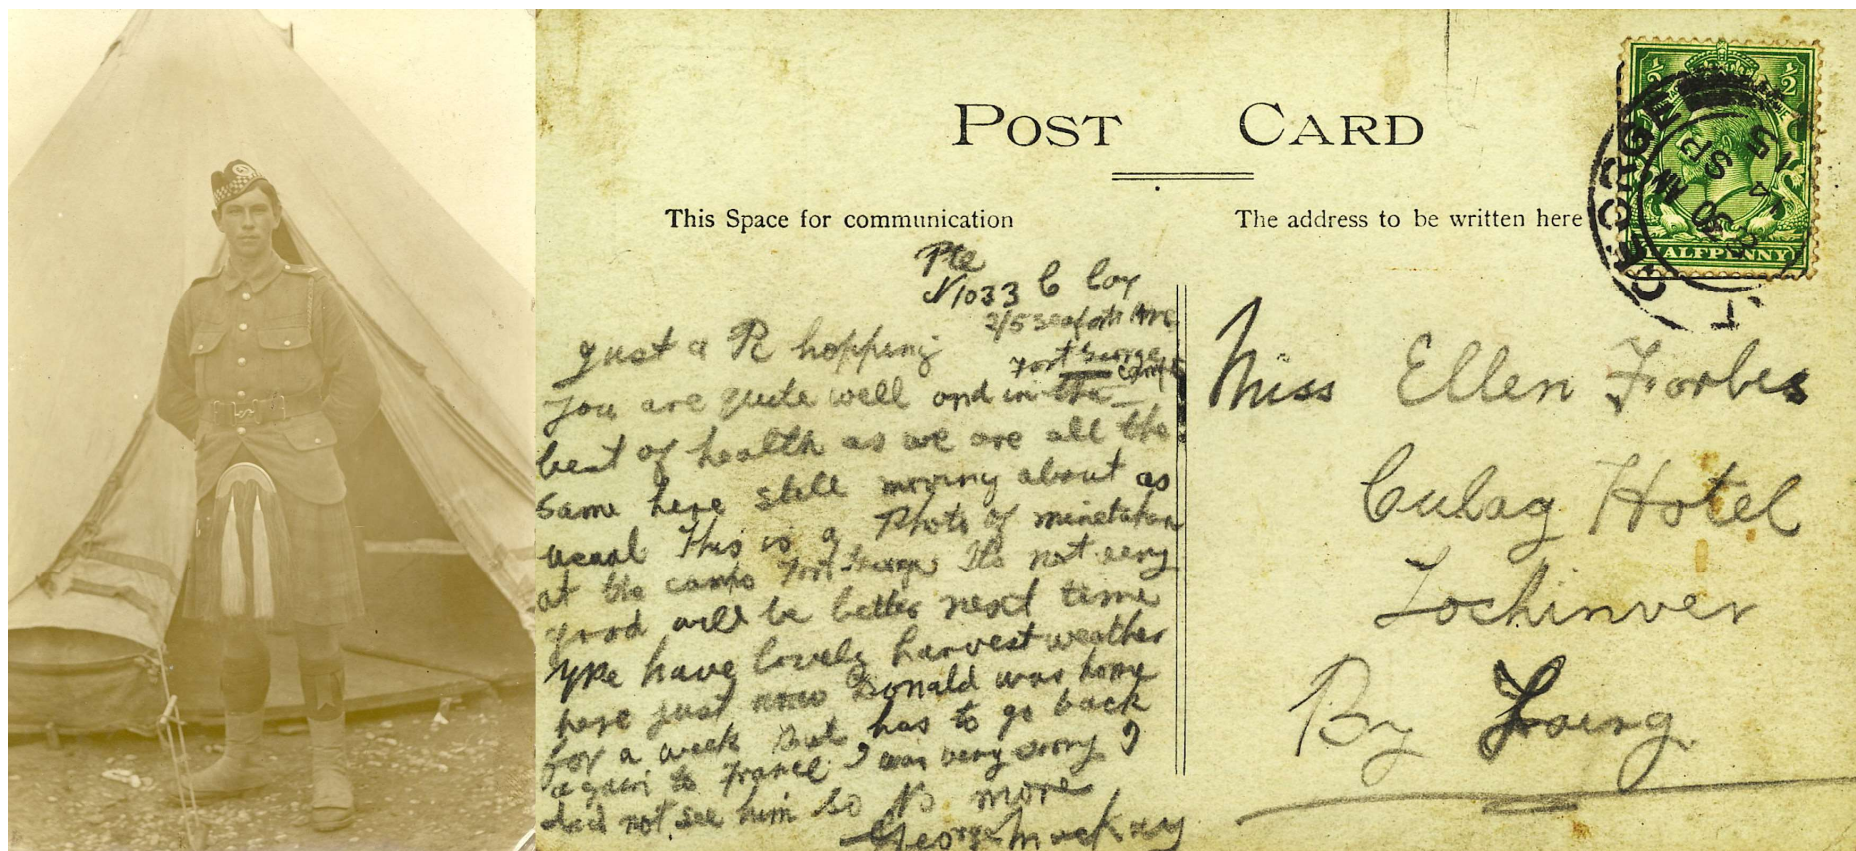 POST CARD
This Space for communication
The address to be written here
½ ½
HALFPENNY
GEORGE
SP 14
15
Pte
N 1033 C Coy
2/5 Seaforth
Fort George
Camp
Just a Pc hopping
you are quite well and in the
best of health as we are all the
same here still moving about as
usual This is a Photo of mine taken
at the camp Fort George Its not very
good will be better next time
We have lovely harvest weather
here just now Donald was home
for a week But has to go back
again to France I was very sorry I
did not see him So No more
George Mackay
Miss Ellen Forbes
Culag Hotel
Lochinver
By Lairg